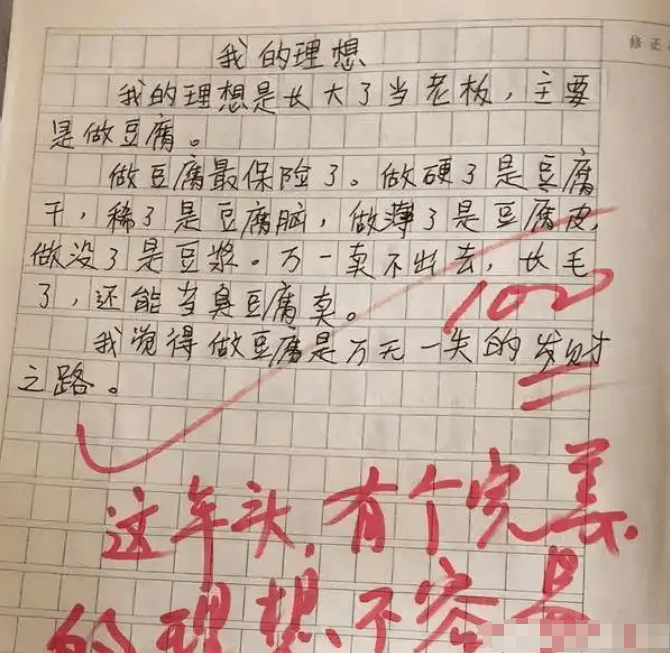 修正
我的理想
我的理想是长大了当老板，主要
是做豆腐。
做豆腐最保险了。做硬了是豆腐
干，稀了是豆腐脑，做薄了是豆腐皮，
做没了是豆浆。万一卖不出去，长毛
了，还能当臭豆腐卖。
我觉得做豆腐是万无一失的发财
之路。
100
这年头，有个完美
的理想不容易